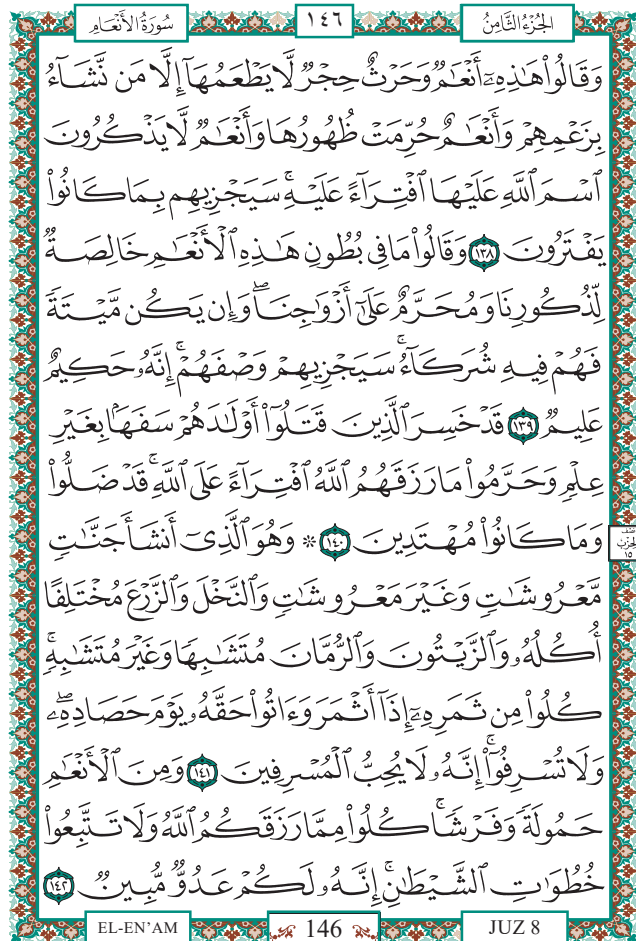 الجُزْءُ الثَّامِنُ ١٤٦ سُورَةُ الأَنْعَامِ
وَقَالُوا۟ هَـٰذِهِۦٓ أَنْعَـٰمٌ وَحَرْثٌ حِجْرٌ لَّا يَطْعَمُهَآ إِلَّا مَن نَّشَآءُ
بِزَعْمِهِمْ وَأَنْعَـٰمٌ حُرِّمَتْ ظُهُورُهَا وَأَنْعَـٰمٌ لَّا يَذْكُرُونَ
ٱسْمَ ٱللَّهِ عَلَيْهَا ٱفْتِرَآءً عَلَيْهِ ۚ سَيَجْزِيهِم بِمَا كَانُوا۟
يَفْتَرُونَ ١٣٨ وَقَالُوا۟ مَا فِى بُطُونِ هَـٰذِهِ ٱلْأَنْعَـٰمِ خَالِصَةٌ
لِّذُكُورِنَا وَمُحَرَّمٌ عَلَىٰٓ أَزْوَٰجِنَا ۖ وَإِن يَكُن مَّيْتَةً
فَهُمْ فِيهِ شُرَكَآءُ ۚ سَيَجْزِيهِمْ وَصْفَهُمْ ۚ إِنَّهُۥ حَكِيمٌ
عَلِيمٌ ١٣٩ قَدْ خَسِرَ ٱلَّذِينَ قَتَلُوٓا۟ أَوْلَـٰدَهُمْ سَفَهًۢا بِغَيْرِ
عِلْمٍ وَحَرَّمُوا۟ مَا رَزَقَهُمُ ٱللَّهُ ٱفْتِرَآءً عَلَى ٱللَّهِ ۚ قَدْ ضَلُّوا۟
وَمَا كَانُوا۟ مُهْتَدِينَ ١٤٠ ۞ وَهُوَ ٱلَّذِىٓ أَنشَأَ جَنَّـٰتٍ
نصف الحزب ١٥
مَّعْرُوشَـٰتٍ وَغَيْرَ مَعْرُوشَـٰتٍ وَٱلنَّخْلَ وَٱلزَّرْعَ مُخْتَلِفًا
أُكُلُهُۥ وَٱلزَّيْتُونَ وَٱلرُّمَّانَ مُتَشَـٰبِهًا وَغَيْرَ مُتَشَـٰبِهٍ ۚ
كُلُوا۟ مِن ثَمَرِهِۦٓ إِذَآ أَثْمَرَ وَءَاتُوا۟ حَقَّهُۥ يَوْمَ حَصَادِهِۦ ۖ
وَلَا تُسْرِفُوٓا۟ ۚ إِنَّهُۥ لَا يُحِبُّ ٱلْمُسْرِفِينَ ١٤١ وَمِنَ ٱلْأَنْعَـٰمِ
حَمُولَةً وَفَرْشًا ۚ كُلُوا۟ مِمَّا رَزَقَكُمُ ٱللَّهُ وَلَا تَتَّبِعُوا۟
خُطُوَٰتِ ٱلشَّيْطَـٰنِ ۚ إِنَّهُۥ لَكُمْ عَدُوٌّ مُّبِينٌ ١٤٢
EL-EN'AM 146 JUZ 8